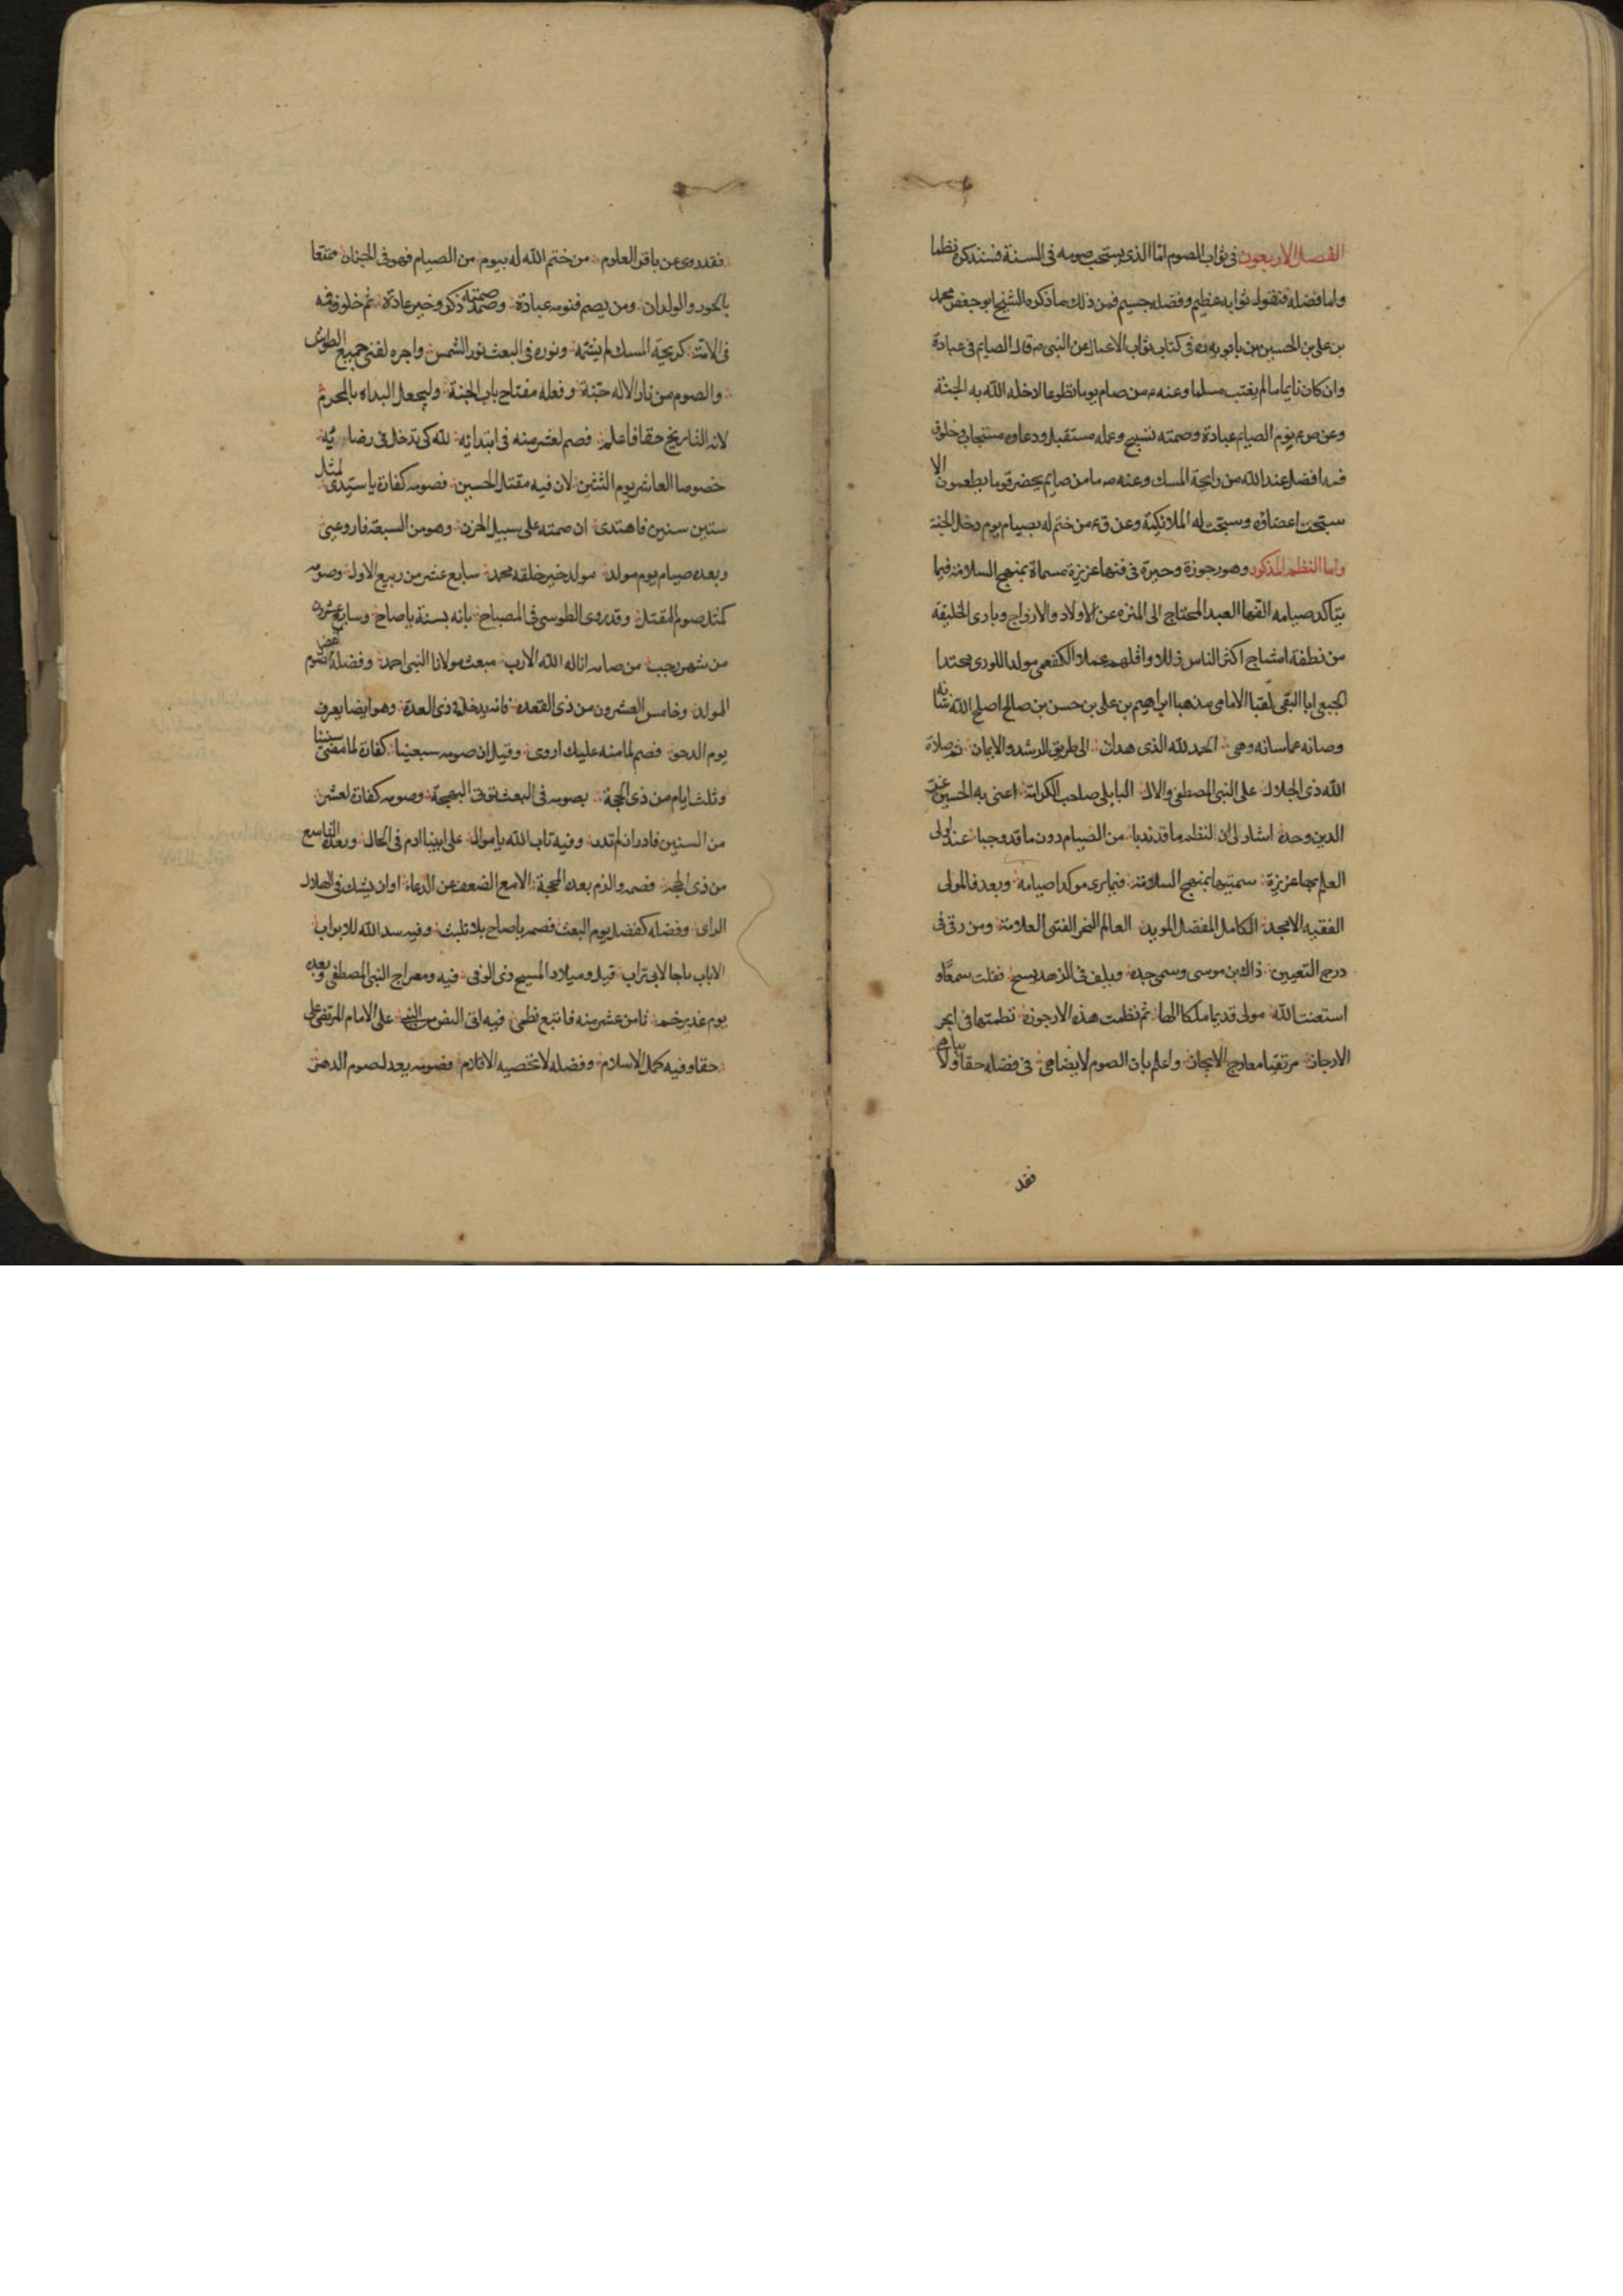 الفصل الاربعون في ثواب الصوم اما الذي يستحب صومه في السنة فسنذكره نظما
واما فضله فنقول ثوابه عظيم وفضله جسيم فمن ذلك ما ذكره الشيخ ابو جعفر محمد
بن علي بن الحسين بن بابويه ره في كتاب ثواب الاعمال عن النبي ص قال الصايم في عبادة
وان كان نايما ما لم يغتب مسلما وعنه ع من صام يوما تطوعا ادخله الله به الجنة
وعن ص ع نوم الصايم عبادة وصمته تسبيح وعمله متقبل ودعاوه مستجاب وخلوق
فمه افضل عند الله من رايحة المسك وعنه ص ما من صايم يحضر قوما يطعمون الا
سبحت اعضاؤه وسبحت له الملائكة وعن ق ع من ختم له بصيام يوم دخل الجنة
واما النظم المذكور وهو رجوزة وجيزة في فنها عزيزة مسماة بمنهج السلامة فيما
يتاكد صيامه الفها العبد المحتاج الى المنزه عن الاولاد والازواج وباري الخليقة
من نطفة امشاج اكثر الناس زللا واقلهم عملا الكفعمي مولدا اللوري محتدا
الجبعي ابا التقي لقبا الامامي مذهبا ابراهيم بن علي بن حسن بن صالح اصلح الله شانه
وصانه عما شانه وهي الحمد لله الذي هداني الى طريق الرشد والايمان ثم صلاة
الله ذي الجلال على النبي المصطفى والال البابلي صاحب الكرامة اعني به الحسين عز
الدين وحده اشار لي ان انظم ما قد ندبا من الصيام دون ما قد وجبا عند اولي
العلم بها عزيزة سميتها بمنهج السلامة فيما يرى موكدا صيامه وبعد فالمولى
الفقيه الامجد الكامل المفضل المويد العالم النحر الفتى العلامة ومن رقى في
درج التعيين ذاك بن موسى وسمي جده ويلف في الزهد يسيح فقلت سمعا و
استعنت الله مولى قديما ملكا الها ثم نظمت هذه الارجوزة نظمتها في ابحر
الارجاز مرتقيا معارج الايجاز واعلم بان الصوم لا يضاهى في فضله حقا ولا يباهى
فقد
فقد روى عن باقر العلوم من ختم الله له بيوم من الصيام فهو في الجنان ممتعا
بالحور والولدان ومن يصم فنومه عبادة وصمته ذكر وخير عادة ثم خلوق فمه
في الامة كريحة المسك لمن يشمه ونوره في البعث نور الشمس واجره لفني جميع الطرس
والصوم من نار الاله جنة وفعله مفتاح باب الجنة وليجعل البداه بالمحرم
لانه التاريخ حقا فاعلم فصم لعشر منه في ابتدائه لله كي تدخل في رضائه
خصوصا العاشر يوم الشين لان فيه مقتل الحسين فصومه كفارة يا سيدي لمثل
ستين سنين فاهتدى ان صمته على سبيل الحزن وهو من السبعة فارو عني
وبعده صيام يوم مولد مولد خير خلقه محمد سابع عشر من ربيع الاول وصومه
كمثل صوم المقتل وقد روى الطوسي في المصباح بانه بسنة يا صاح وسابع عشرون
من شهر رجب من صامه اناله الله الارب مبعث مولانا النبي احمد وفضله كفضل صوم
المولد وخامس العشرون من ذي القعده فانه يدخل في ذي العدة وهو ايضا يعرف
يوم الدحو فصم لما منه عليك اروي وقيل ان صومه سبعينا كفارة لما مضى سنينا
وثلث ايام من ذي الحجة بصومه في البعث توتى البهجة وصومه كفارة لعشر
من السنين فادر ان لم تدر وفيه تاب الله يا موال على ابينا ادم في الحال وبعده التاسع
من ذي الحجة فصمه والزم بعده المحجة الا مع الضعف عن الدعاء او ان يشك في الهلال
الراى وفضله كفضل يوم البعث فصمه يا صاح بلا تلبث وفيه سد الله للابواب
الا باب ما جا لابي تراب قيل وميلاد المسيح ذي الوفى فيه ومعراج النبي المصطفى وبعده
يوم غدير خم ثامن عشر منه فاتبع نظمي فيه اتى النص من النبي على الامام المرتضى علي
حقا وفيه كمل الاسلام وفضله لا تحصيه الاقلام فصومه يعدل صوم الدهر